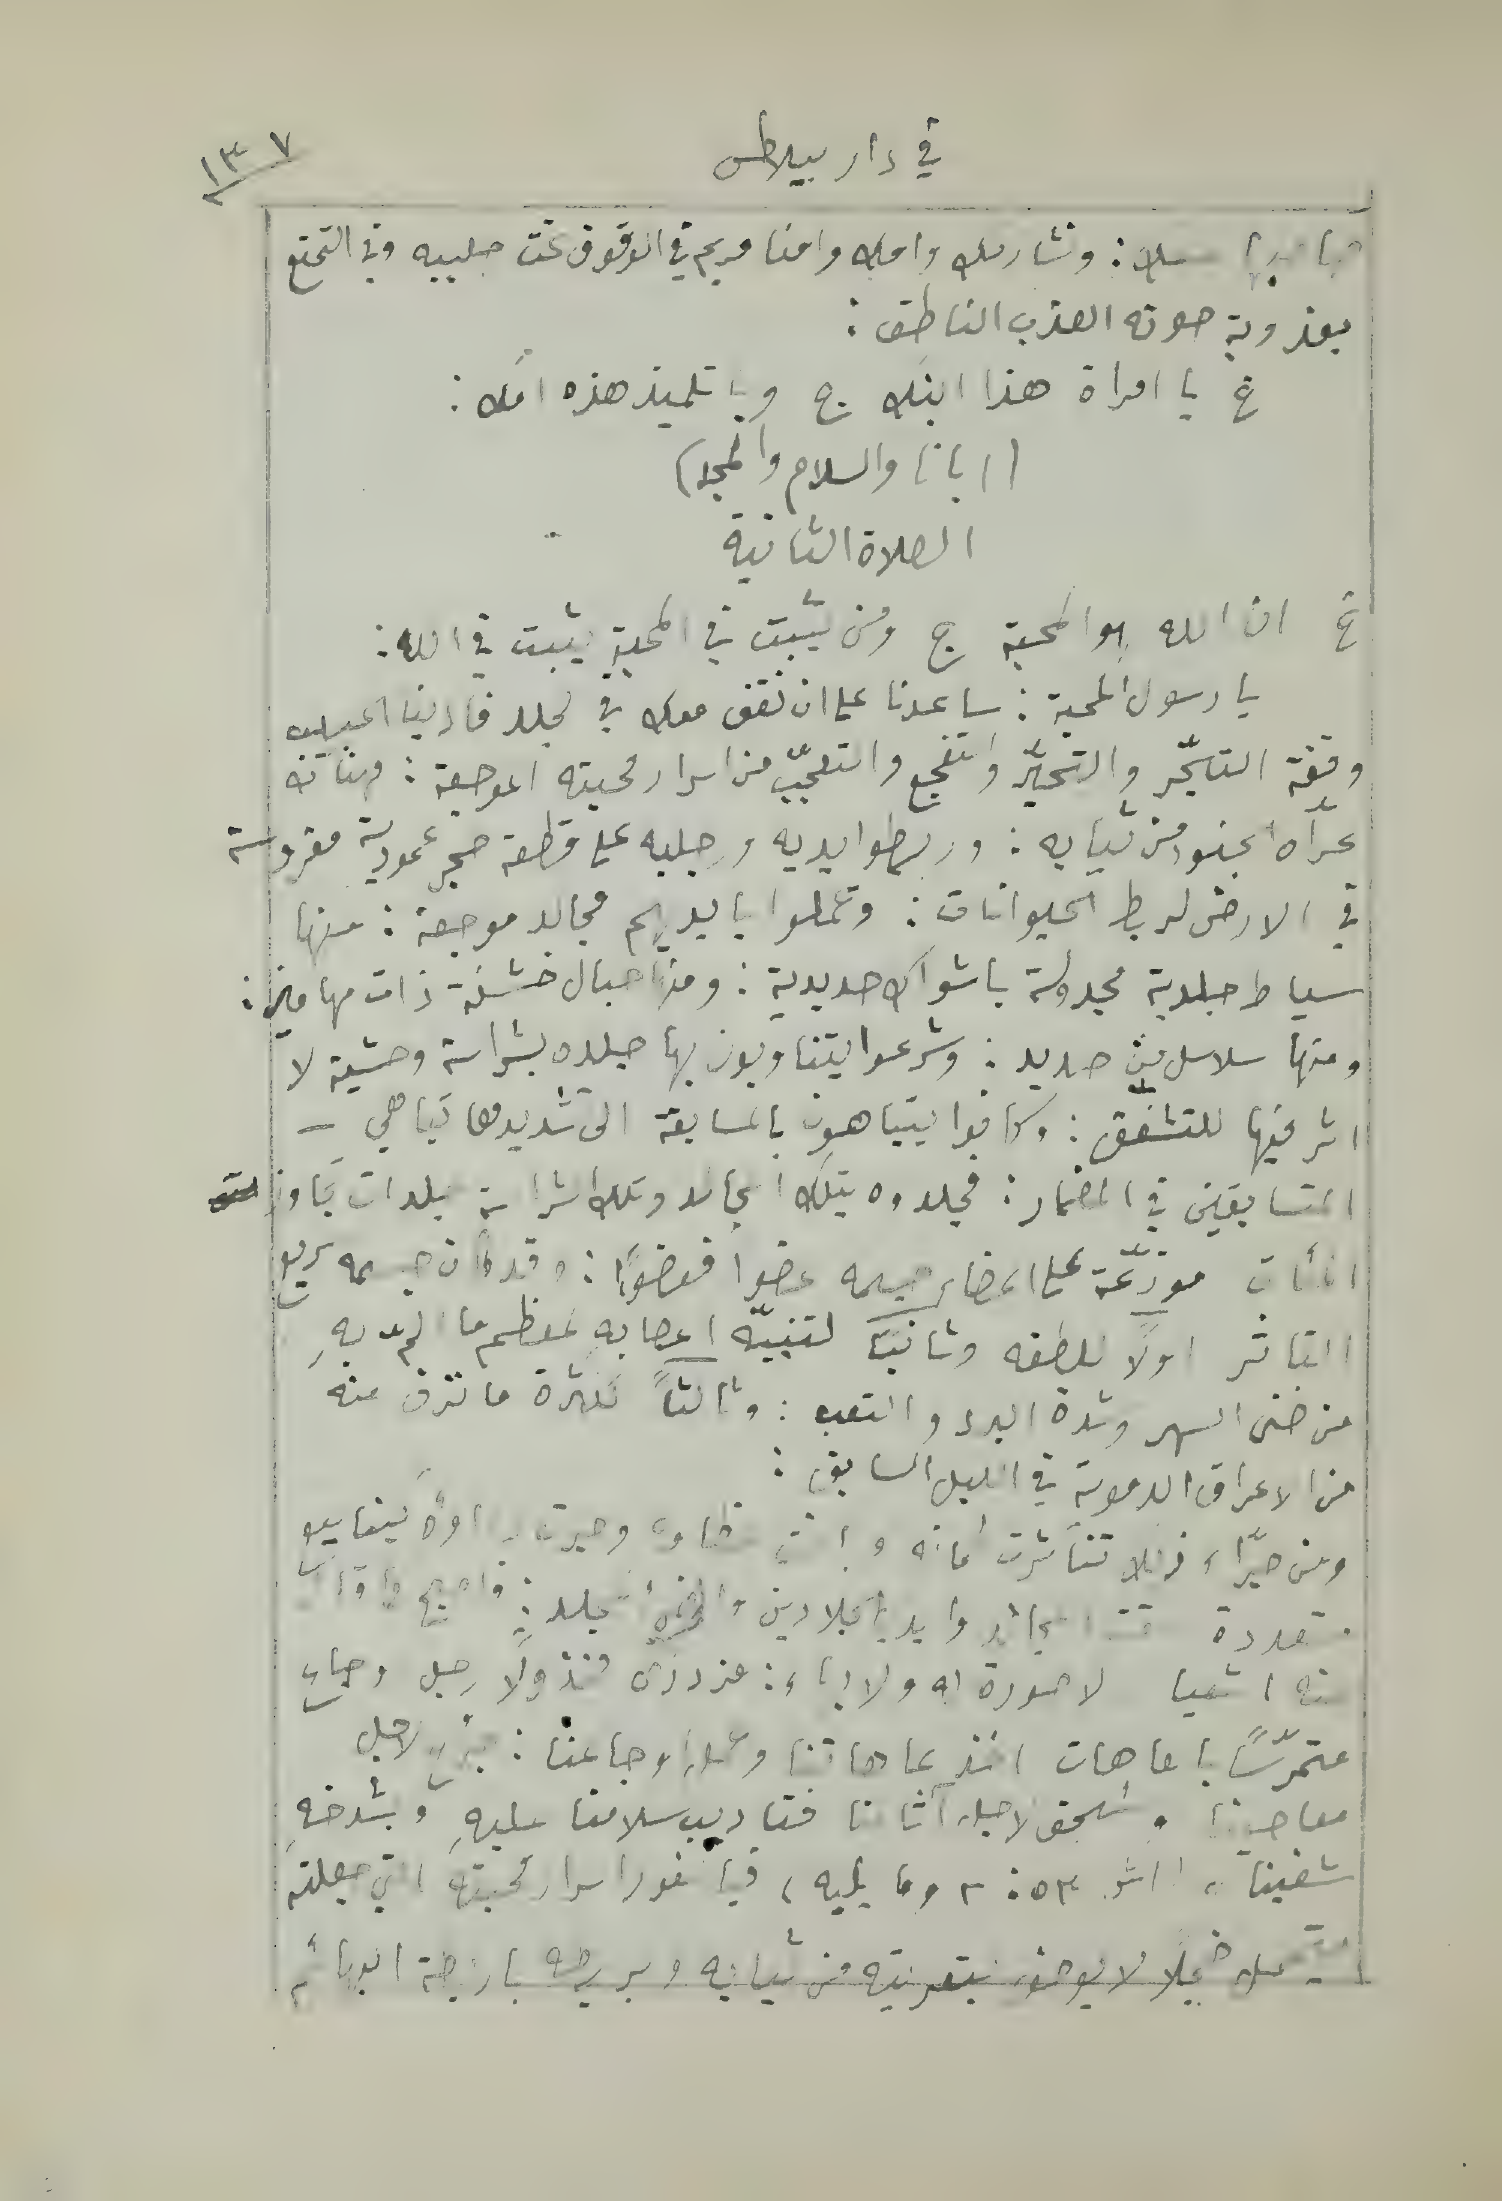 ١٣٧
في دار بيلاطس
وتشاركك وامك وامنا مريم في الوقوف تحت صليبه وفي التمتع
بعذوبة صوته العذب الناطق :
غ يا امراة هذا ابنك ج ويا تلميذ هذه امك :
(ابانا والسلام والمجد)
الصلاة الثانية
غ ان الله هو المحبة ج ومن يثبت في المحبة يثبت في الله :
يا رسول المحبة : ساعدنا على ان نقف معك في جلد فادينا الحبيب
وقفة التأثر والتحيّر والتفجع والتعجّب من اسرار محبته الموجعة :
عرّاه الجنود من ثيابه : وربطوا يديه ورجليه على قطعة حجر عمودية مغروسة
في الارض لربط الحيوانات : وتحملوا بايديهم مجالد موجعة : منها
سياط جلدية مجدولة باشواك حديدية : ومنها حبال خشنة ذات مهاميز :
ومنها سلاسل من حديد : وشرعوا يتناوبون بها جلده بشراسة وحشية لا
اثر فيها للتشفق : وكانوا يتباهون بالمسابقة الى تشديدها تباهي –
المتسابقين في المضمار : فجلدوه بتلك المجالد وتلك الشراسة جلدات تجاوز
المئات موزّعة على اعضاء جسمه عضوا فعضوًا : وقد كان جسمه سريع
التأثر اولًا للطفه وثانيًا لتنبّه اعصابه لمعظم ما الم به
من ضنى السهر وشدة البرد والتعب : وثالثًا لكثرة ما نزف منه
من الاعراق الدموية في الليل السابق :
ومن جرّاء ذلك تناثرت وجرت ينابيع
متعددة المجالد وايدي الجلادين
اشعيا لا صورة له ولا بهاء : مزدرى مخذولًا رجل اوجاع
متمرّسًا بالعاهات اخذ عاهاتنا وحمل اوجاعنا : لاجل
معاصينا وسُحق لاجل آثامنا فتاديب سلامنا عليهِ وبشدخهِ
شفينا (اش ٥٣ : ٢ وما يليه) فيا لغور اسرار محبته التي جعلته
خجلًا لا يوصف بتعريته من ثيابه وبربطه باربطة البهائم